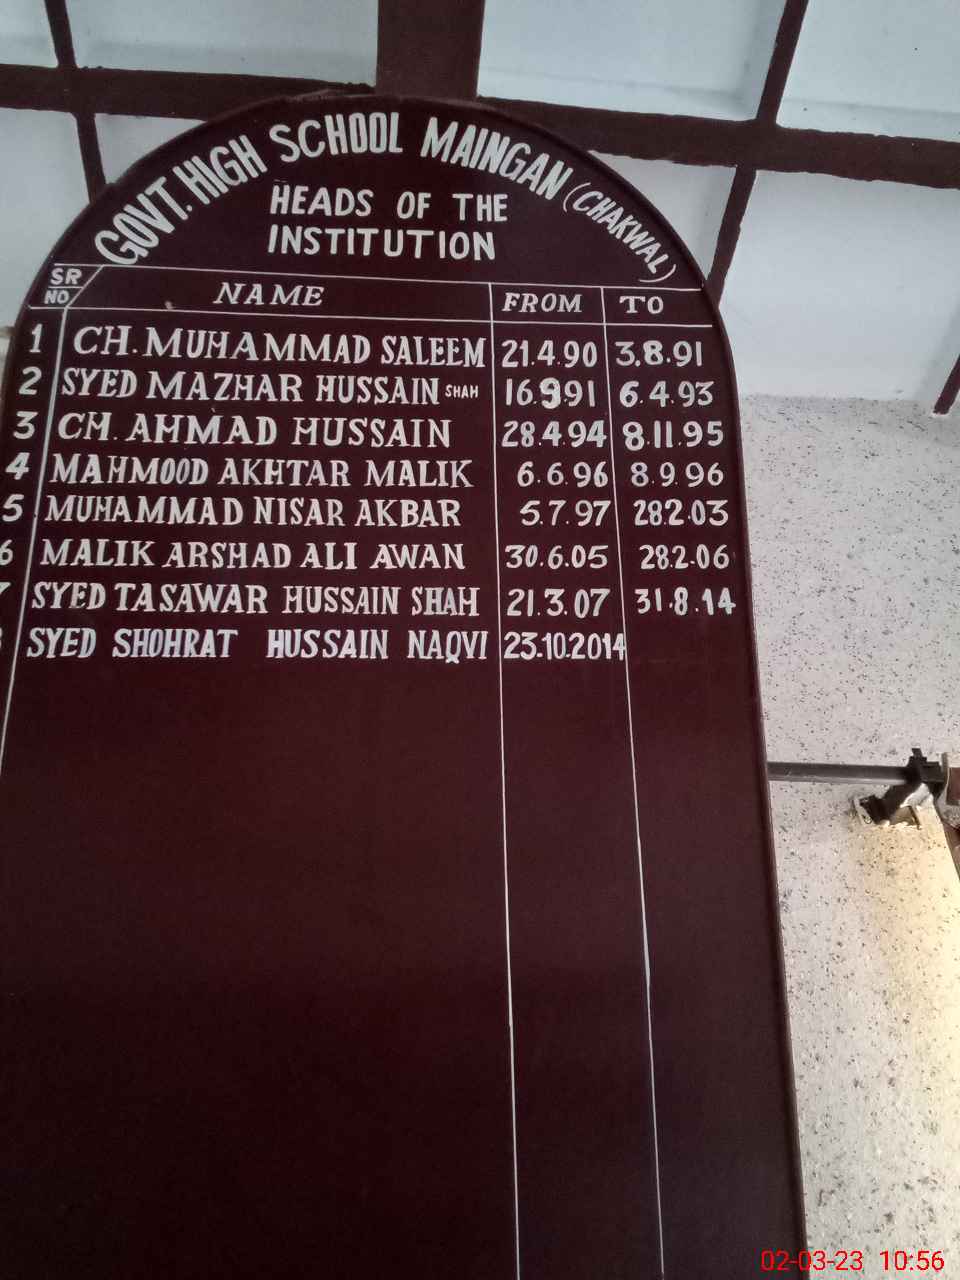 GOVT. HIGH SCHOOL MAINGAN (CHAKWAL)
HEADS OF THE
INSTITUTION
SR NO NAME FROM TO
1 CH. MUHAMMAD SALEEM 21.4.90 3.8.91
2 SYED MAZHAR HUSSAIN SHAH 16.9.91 6.4.93
3 CH. AHMAD HUSSAIN 28.4.94 8.11.95
4 MAHMOOD AKHTAR MALIK 6.6.96 8.9.96
5 MUHAMMAD NISAR AKBAR 5.7.97 28.2.03
6 MALIK ARSHAD ALI AWAN 30.6.05 28.2.06
7 SYED TASAWAR HUSSAIN SHAH 21.3.07 31.8.14
8 SYED SHOHRAT HUSSAIN NAQVI 23.10.2014
02-03-23 10:56